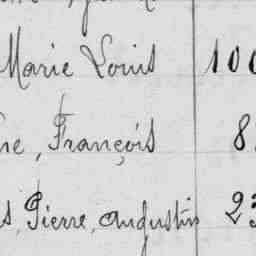 Marie Louis 100
ne, François 8
s, Pierre, Augustin 23